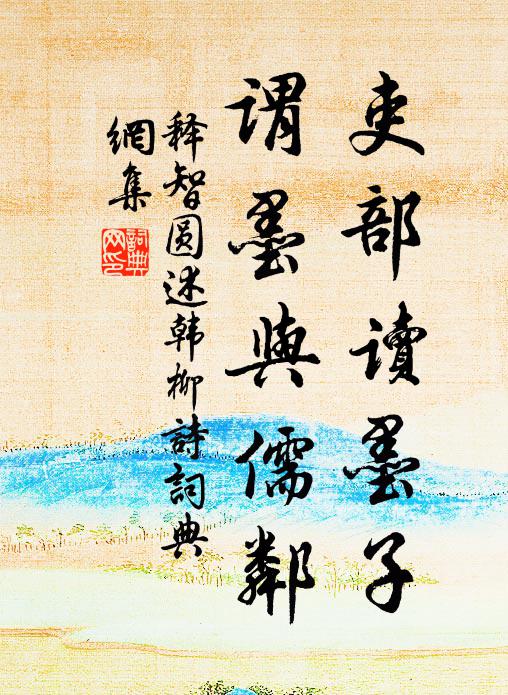 吏部讀墨子
謂墨與儒鄰
释智圆述韩柳詩詞典
網集
詞典網印